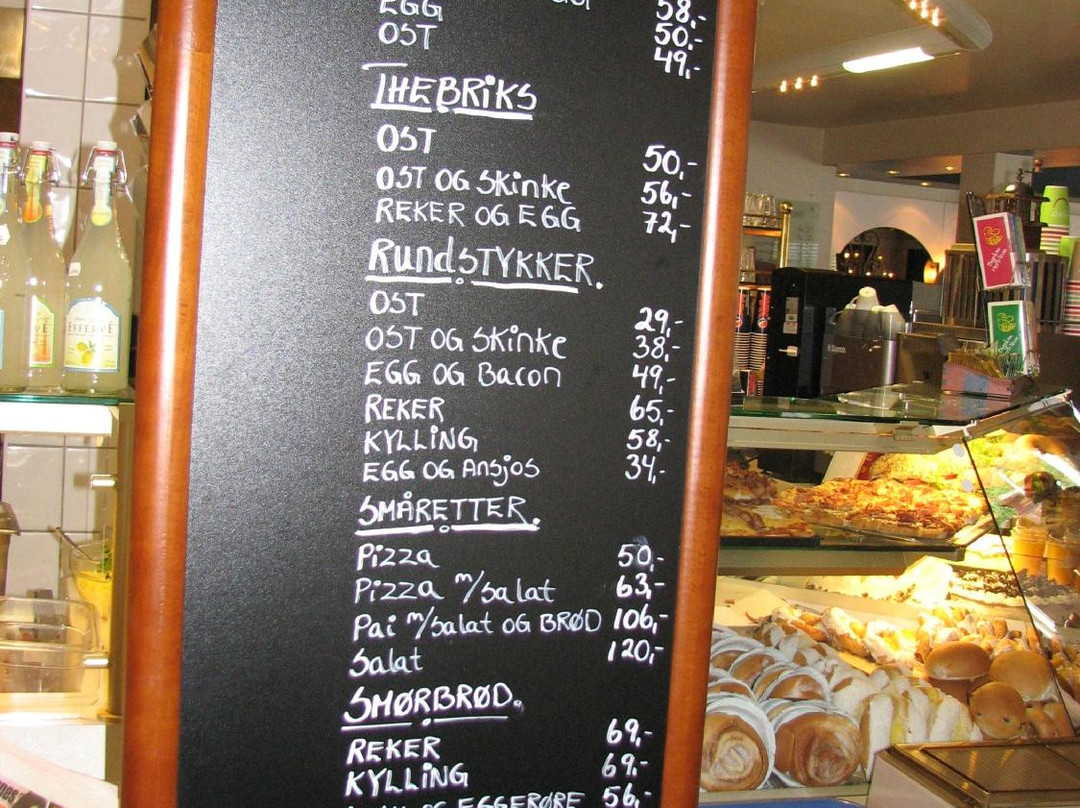 58,-
EGG 50,-
OST 49,-
THEBRIKS
OST 50,-
OST OG SKINKE 56,-
REKER OG EGG 72,-
RUNDSTYKKER.
OST 29,-
OST OG SKINKE 38,-
EGG OG BACON 49,-
REKER 65,-
KYLLING 58,-
EGG OG Ansjos 34,-
SMÅRETTER.
Pizza 50,-
Pizza m/Salat 63,-
Pai m/Salat OG BRØD 106,-
Salat 120,-
SMØRBRØD.
REKER 69,-
KYLLING 69,-
OG EGGERØRE 56,-
EFFERVE